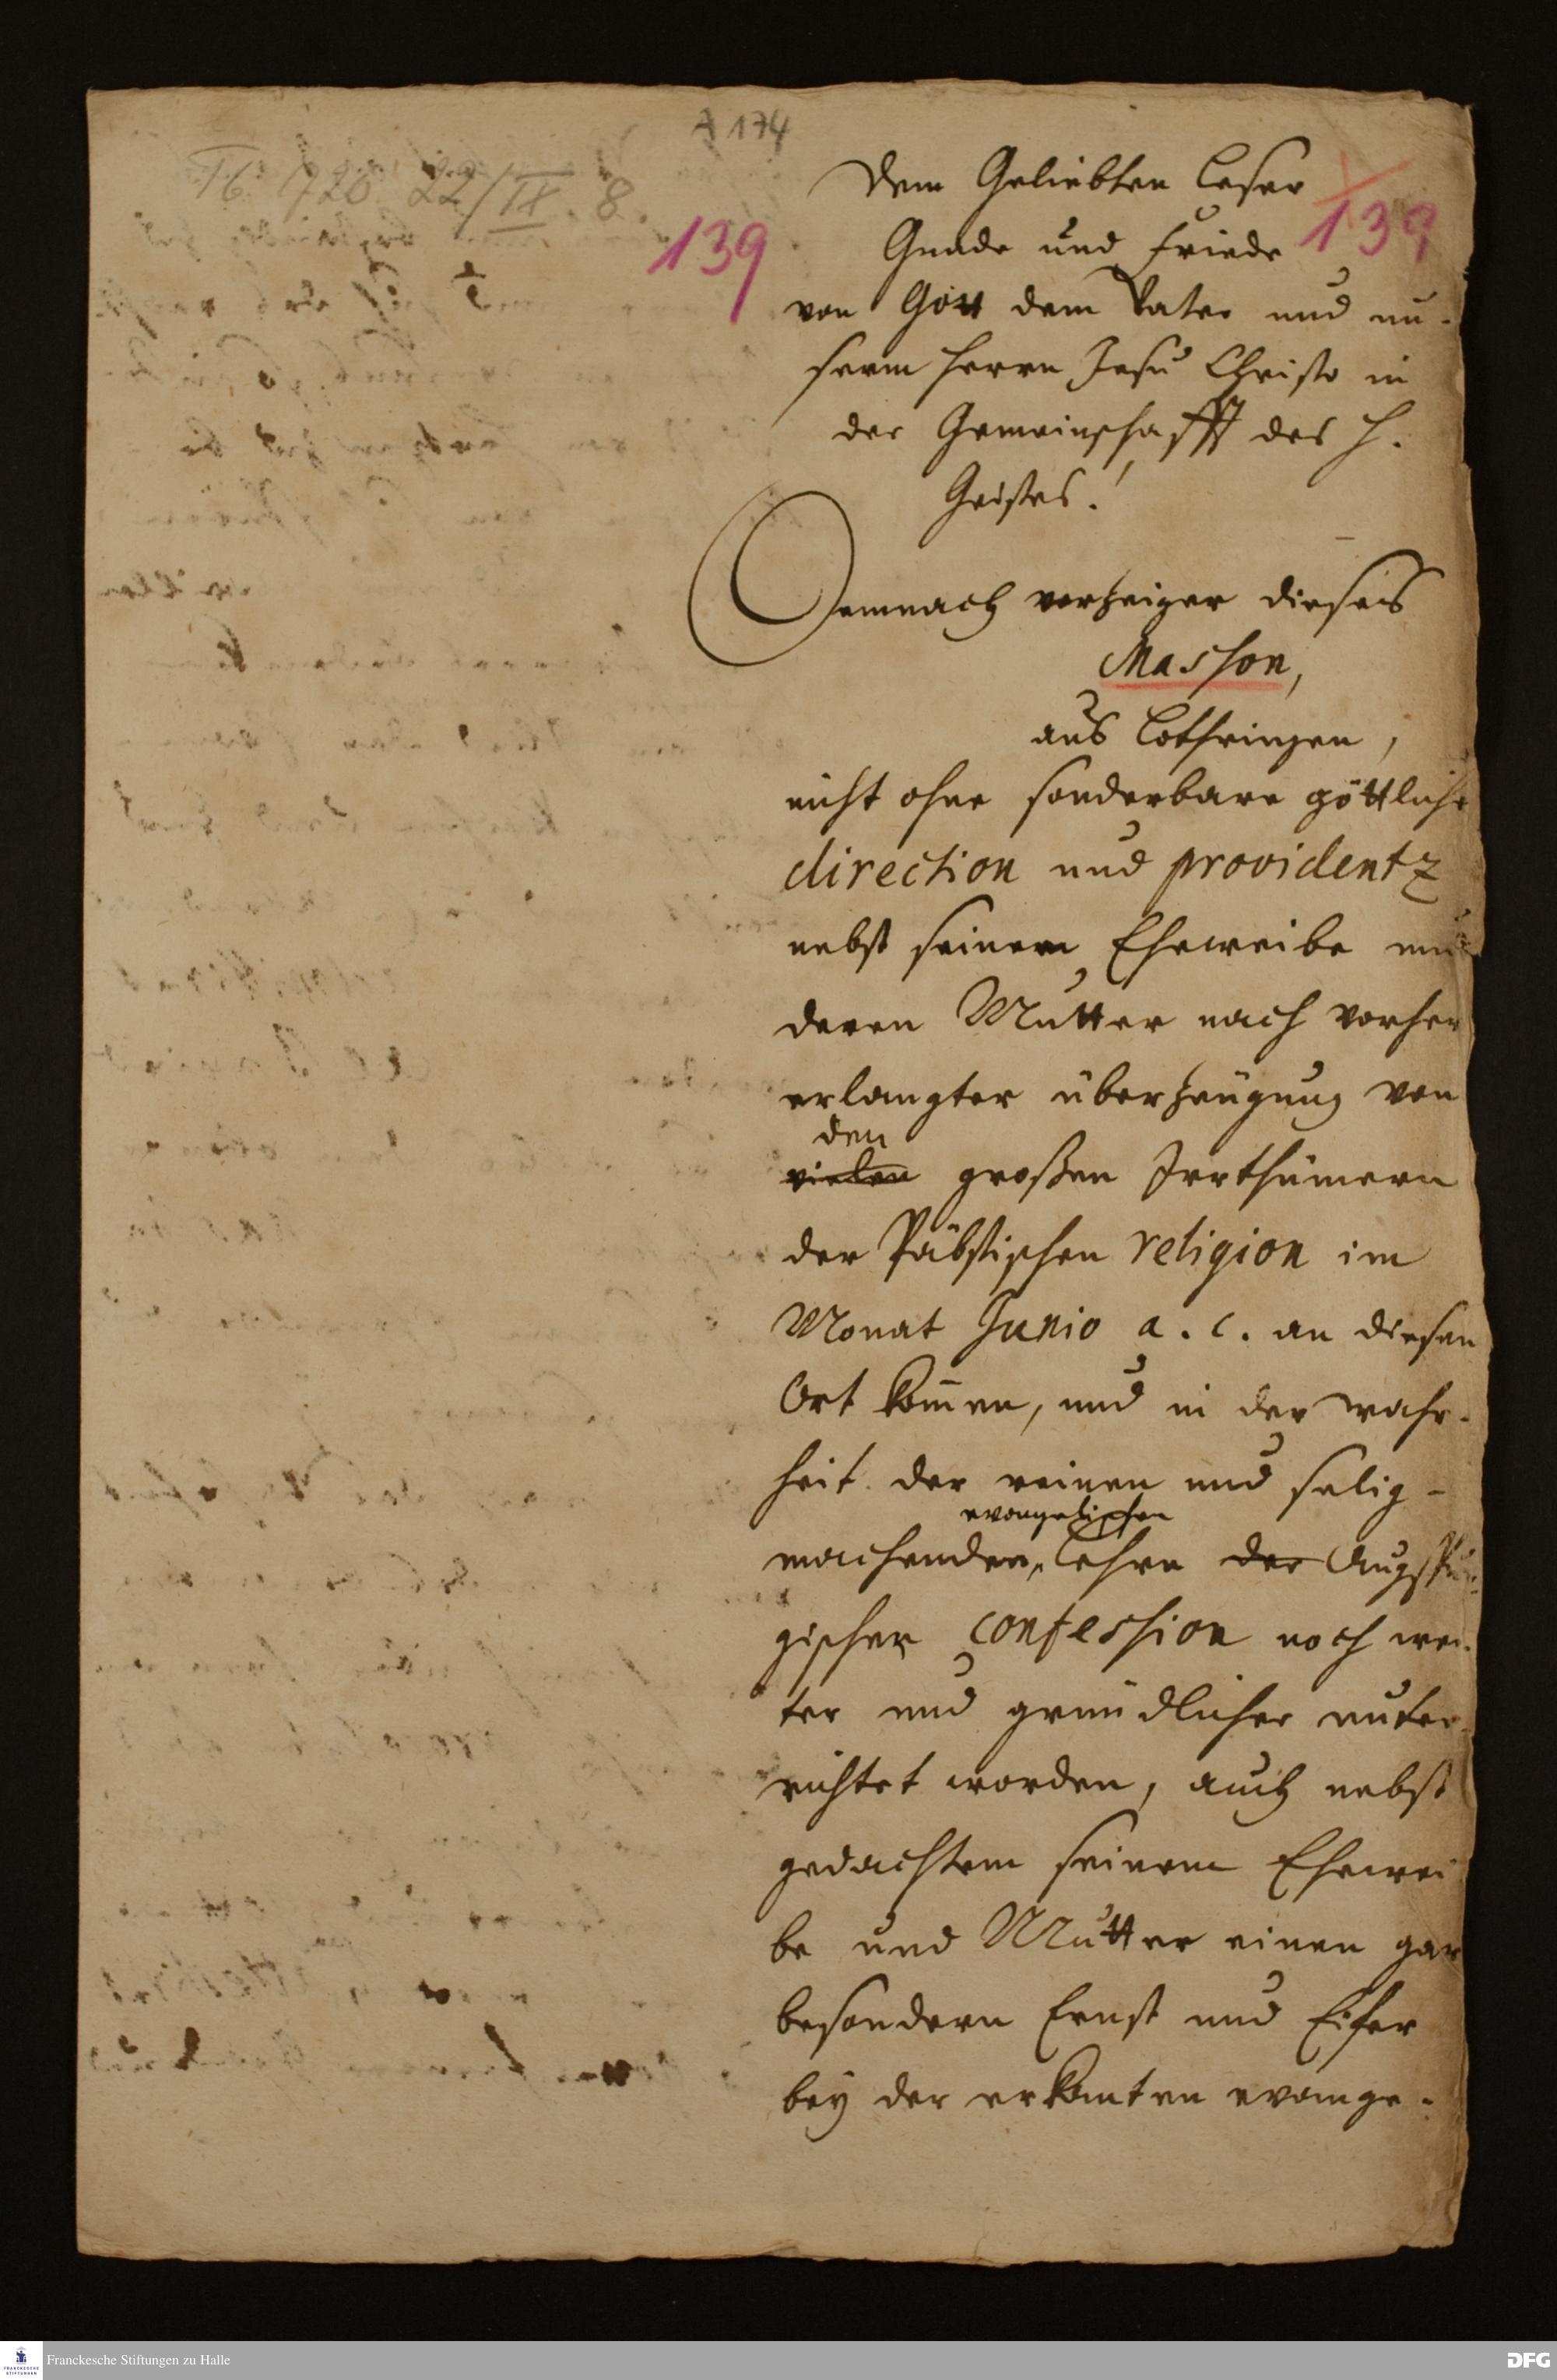 A 174
Tb. 720 22/IX. 8.
139
139
Dem Geliebten Leser
Gnade und Friede
von Gott dem Vater und un-
serm Herrn Jesu Christo in
der Gemeinschafft des H.
Geistes!
Demnach vorzeiger dieses
Masson,
aus Lothringen,
nicht ohne sonderbare göttliche
direction und providentz
nebst seinem Eheweibe und
deren Mutter nach vorher
erlangter überzeugung von
den
vielen großen Irrthümern
der Päbstischen religion im
Monat Junio a. c. an diesen
Ort kom̄en, und in der wahr-
heit der reinen und selig-
evangelischen
machenden Lehre der Augspur-
gischer confession noch wei-
ter und gründlicher unter-
richtet worden, auch nebst
gedachtem seinem Ehewei
be und Mutter einen gar
besondern Ernst und Eifer
bey der erkanten evange-
Franckesche Stiftungen zu Halle
DFG